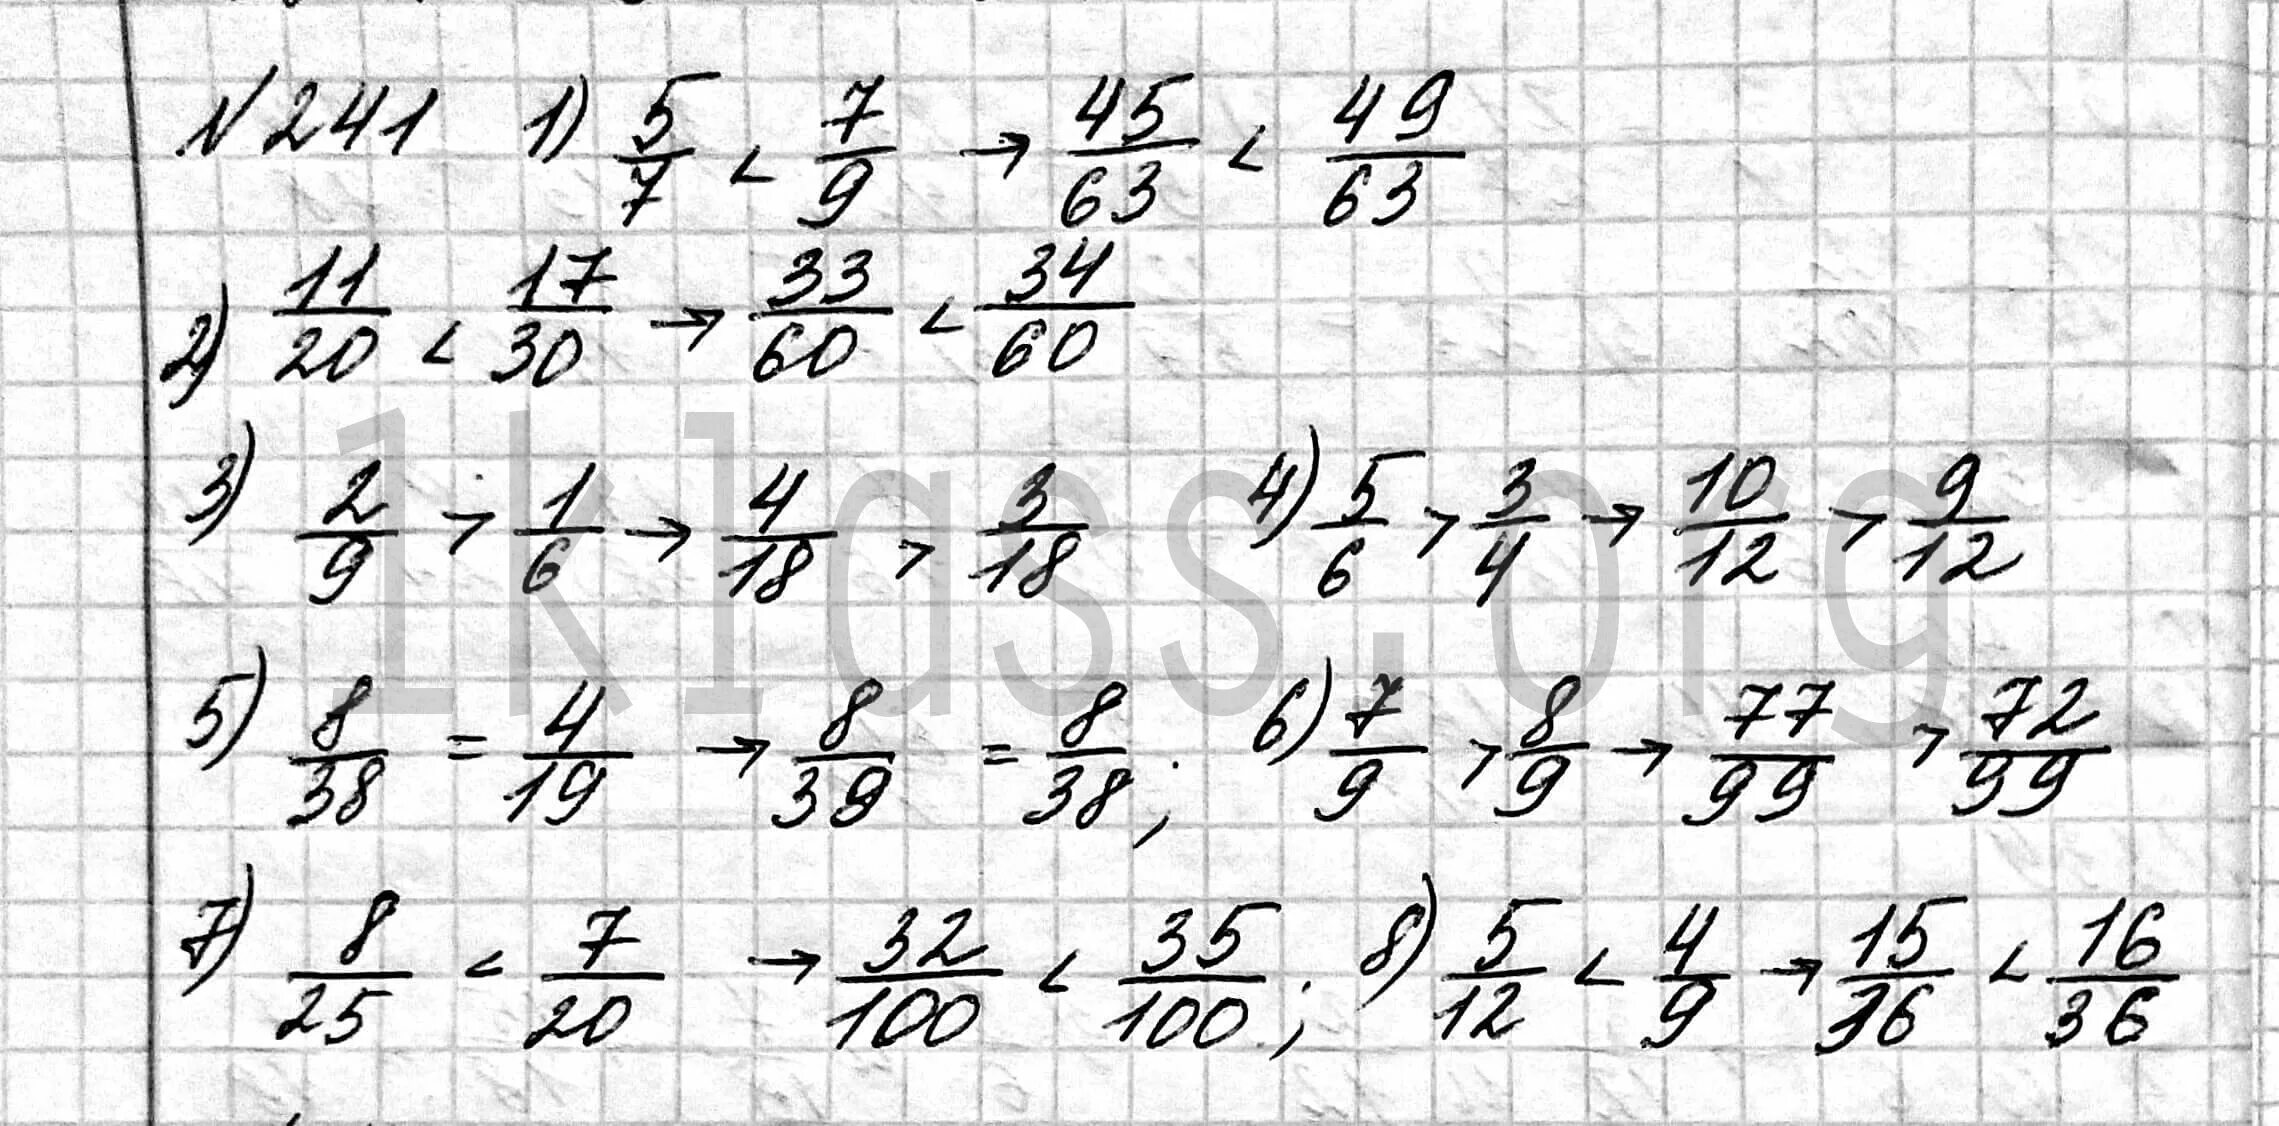 №241 1) 5/7 < 7/9 → 45/63 < 49/63
2) 11/20 < 17/30 → 33/60 < 34/60
3) 2/9 > 1/6 → 4/18 > 3/18 4) 5/6 > 3/4 → 10/12 > 9/12
1klass.org
5) 8/38 = 4/19 → 8/38 = 8/38; 6) 7/9 > 8/9 → 77/99 > 72/99
7) 8/25 < 7/20 → 32/100 < 35/100; 8) 5/12 < 4/9 → 15/36 < 16/36